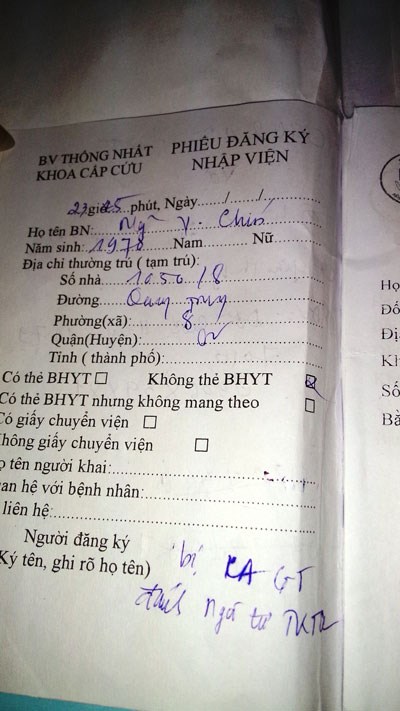 BV THỐNG NHẤT
KHOA CẤP CỨU
PHIẾU ĐĂNG KÝ
NHẬP VIỆN
giờ 25 phút, Ngày....../....../......
Họ tên BN: V. Chín
Năm sinh: 1978 Nam Nữ
Địa chỉ thường trú ( tạm trú):
Số nhà 1050/8
Đường Quang Trung
Phường(xã): 8
Quận(Huyện): GV
Tỉnh ( thành phố):
Có thẻ BHYT ☐ Không thẻ BHYT ☒
Có thẻ BHYT nhưng không mang theo ☐
Có giấy chuyển viện ☐
Không giấy chuyển viện ☐
ọ tên người khai:
an hệ với bệnh nhân:
liên hệ:
Người đăng ký
Ký tên, ghi rõ họ tên)
bị CA GT
đánh ngã tư
Họ
Đố
Đị
Kh
Số
Bằ